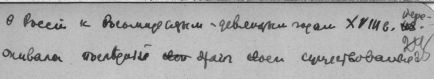 в России к восьмидесятым - девяностым годам XVIII в. пере-
живала последний этап своего существования